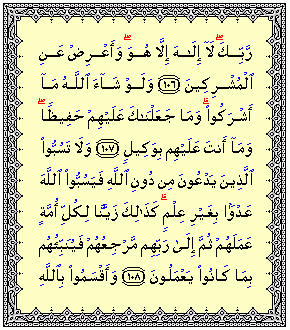 رَّبِّكَۖ لَآ إِلَٰهَ إِلَّا هُوَۖ وَأَعْرِضْ عَنِ
ٱلْمُشْرِكِينَ ۝١٠٦ وَلَوْ شَآءَ ٱللَّهُ مَآ
أَشْرَكُوا۟ۗ وَمَا جَعَلْنَٰكَ عَلَيْهِمْ حَفِيظًاۖ
وَمَآ أَنتَ عَلَيْهِم بِوَكِيلٍ ۝١٠٧ وَلَا تَسُبُّوا۟
ٱلَّذِينَ يَدْعُونَ مِن دُونِ ٱللَّهِ فَيَسُبُّوا۟ ٱللَّهَ
عَدْوًۢا بِغَيْرِ عِلْمٍۗ كَذَٰلِكَ زَيَّنَّا لِكُلِّ أُمَّةٍ
عَمَلَهُمْ ثُمَّ إِلَىٰ رَبِّهِم مَّرْجِعُهُمْ فَيُنَبِّئُهُم
بِمَا كَانُوا۟ يَعْمَلُونَ ۝١٠٨ وَأَقْسَمُوا۟ بِٱللَّهِ